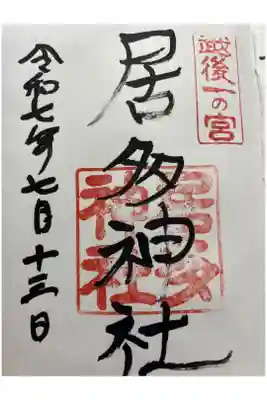 越後一の宮
居多神社
居多神社
令和七年七月十三日